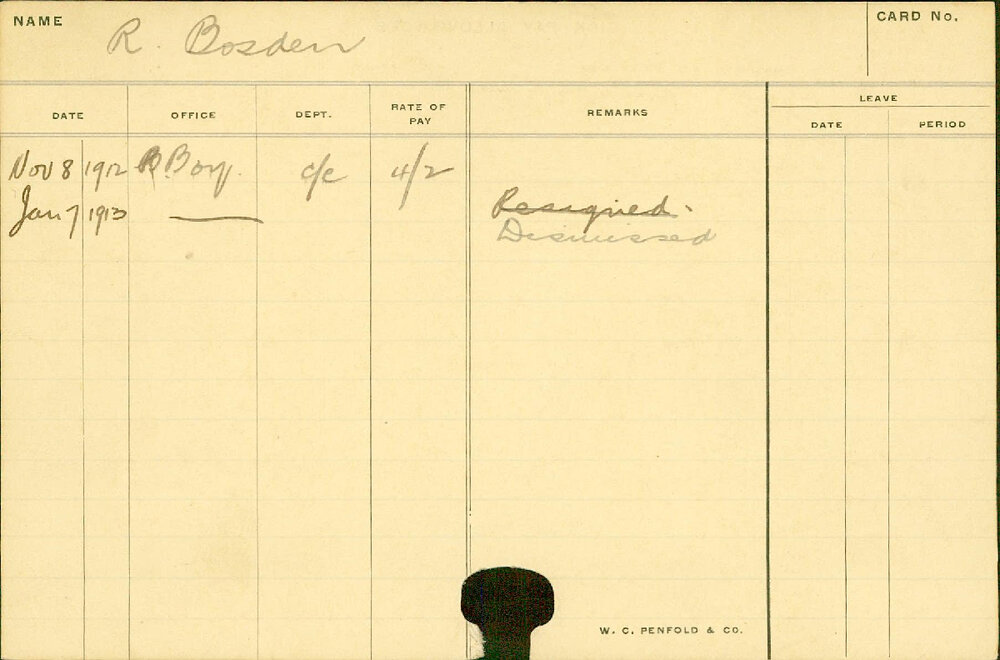 NAME R. Bosden CARD No.
DATE OFFICE DEPT. RATE OF PAY REMARKS LEAVE
DATE PERIOD
Nov 8 1912 B Boy. c/c 4/2
Jan 7 1913 — Resigned.
Dismissed
W. C. PENFOLD & CO.